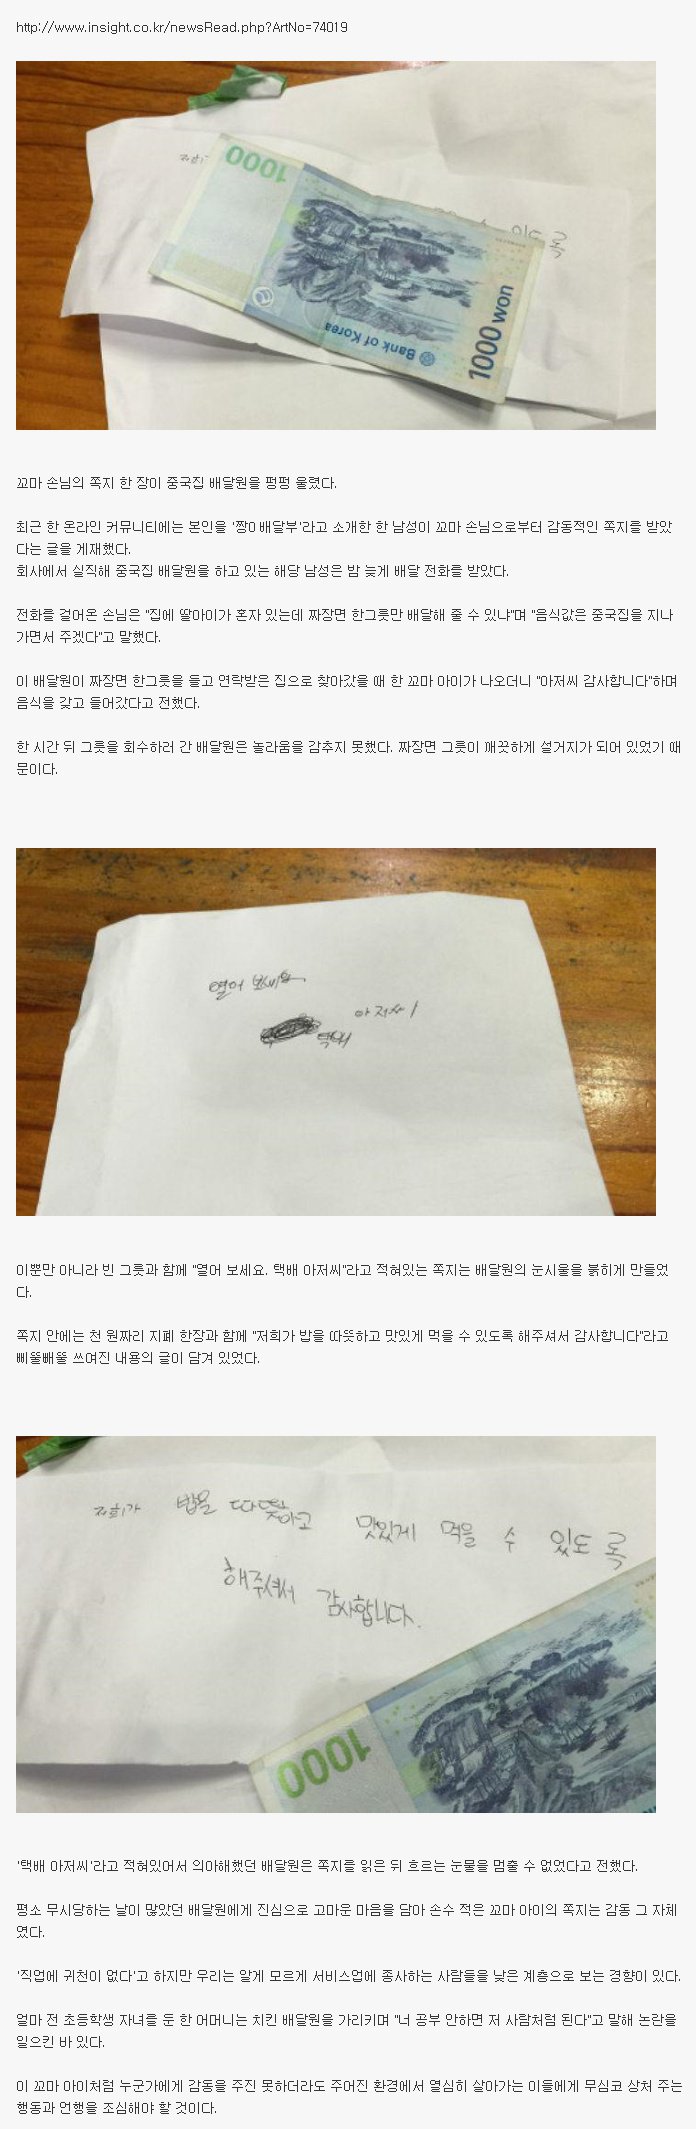 http://www.insight.co.kr/newsRead.php?ArtNo=74019
1000
저희
수 있도록
Bank of Korea
1000 won
꼬마 손님의 쪽지 한 장이 중국집 배달원을 펑펑 울렸다.
최근 한 온라인 커뮤니티에는 본인을 '짱0 배달부'라고 소개한 한 남성이 꼬마 손님으로부터 감동적인 쪽지를 받았
다는 글을 게재했다.
회사에서 실직해 중국집 배달원을 하고 있는 해당 남성은 밤 늦게 배달 전화를 받았다.
전화를 걸어온 손님은 "집에 딸아이가 혼자 있는데 짜장면 한그릇만 배달해 줄 수 있냐"며 "음식값은 중국집을 지나
가면서 주겠다"고 말했다.
이 배달원이 짜장면 한그릇을 들고 연락받은 집으로 찾아갔을 때 한 꼬마 아이가 나오더니 "아저씨 감사합니다"하며
음식을 갖고 들어갔다고 전했다.
한 시간 뒤 그릇을 회수하러 간 배달원은 놀라움을 감추지 못했다. 짜장면 그릇이 깨끗하게 설거지가 되어 있었기 때
문이다.
열어 보세요
택배 아저씨
이뿐만 아니라 빈 그릇과 함께 "열어 보세요. 택배 아저씨"라고 적혀있는 쪽지는 배달원의 눈시울을 붉히게 만들었
다.
쪽지 안에는 천 원짜리 지폐 한장과 함께 "저희가 밥을 따뜻하고 맛있게 먹을 수 있도록 해주셔서 감사합니다"라고
삐뚤빼뚤 쓰여진 내용의 글이 담겨 있었다.
저희가 밥을 따뜻하고 맛있게 먹을 수 있도록
해주셔서 감사합니다.
1000
'택배 아저씨'라고 적혀있어서 의아해했던 배달원은 쪽지를 읽은 뒤 흐르는 눈물을 멈출 수 없었다고 전했다.
평소 무시당하는 날이 많았던 배달원에게 진심으로 고마운 마음을 담아 손수 적은 꼬마 아이의 쪽지는 감동 그 자체
였다.
'직업에 귀천이 없다'고 하지만 우리는 알게 모르게 서비스업에 종사하는 사람들을 낮은 계층으로 보는 경향이 있다.
얼마 전 초등학생 자녀를 둔 한 어머니는 치킨 배달원을 가리키며 "너 공부 안하면 저 사람처럼 된다"고 말해 논란을
일으킨 바 있다.
이 꼬마 아이처럼 누군가에게 감동을 주진 못하더라도 주어진 환경에서 열심히 살아가는 이들에게 무심코 상처 주는
행동과 언행을 조심해야 할 것이다.